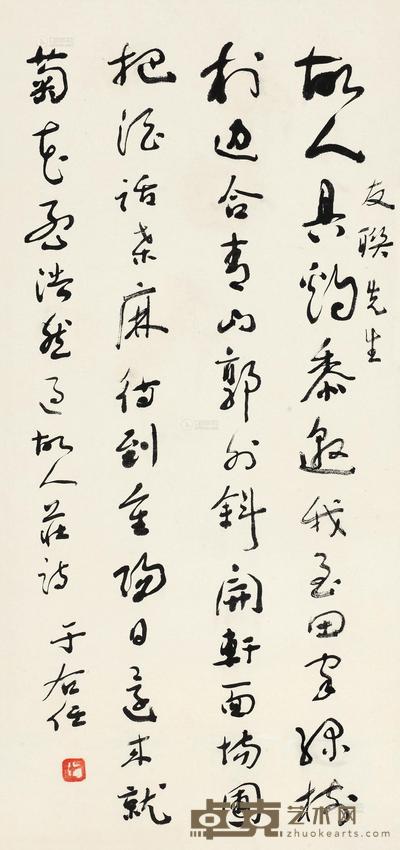 友聯先生
故人具鷄黍邀我至田家綠樹
村邊合青山郭外斜開軒面場圃
把酒話桑麻待到重陽日還來就
菊花孟浩然過故人莊詩 于右任
卓克艺术网
zhuokearts.com